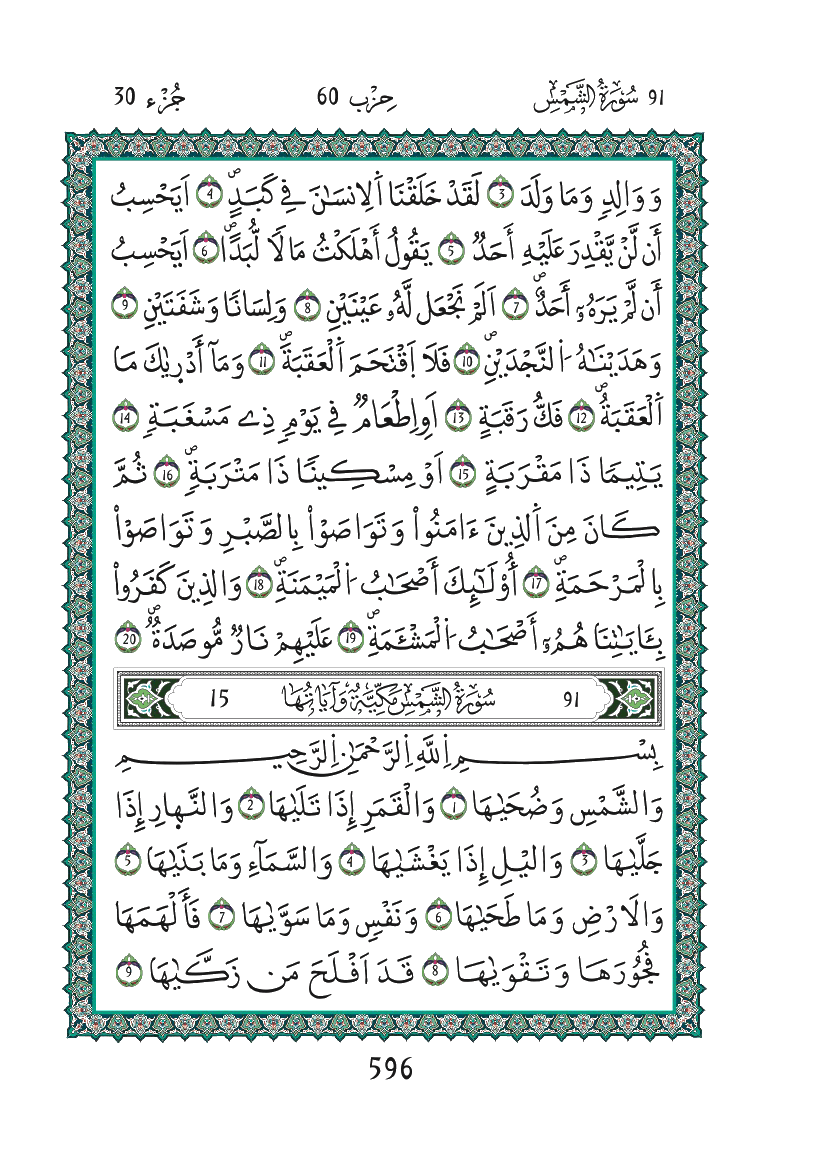 91 سُورَةُ الشَّمْسِ حِزْب 60 جُزْء 30
وَوَالِدٖ وَمَا وَلَدَ 3 لَقَدْ خَلَقْنَا اَ۬لِانسَٰنَ فِے كَبَدٍۖ 4 اَيَحْسِبُ
أَن لَّنْ يَّقْدِرَ عَلَيْهِ أَحَدٌ 5 يَقُولُ أَهْلَكْتُ مَالاٗ لُّبَداًۖ 6 اَيَحْسِبُ
أَن لَّمْ يَرَهُۥٓ أَحَدٌۖ 7 اَلَمْ نَجْعَل لَّهُۥ عَيْنَيْنِ 8 وَلِسَاناٗ وَشَفَتَيْنِ 9
وَهَدَيْنَٰهُ اُ۬لنَّجْدَيْنِۖ 10 فَلَا اَ۪قْتَحَمَ اَ۬لْعَقَبَةَۖ 11 وَمَآ أَدْر۪يٰكَ مَا
اَ۬لْعَقَبَةُۖ 12 فَكُّ رَقَبَةٍ 13 اَوِ اِطْعَٰمٞ فِے يَوْمٖ ذِے مَسْغَبَةٖ 14
يَتِيماٗ ذَا مَقْرَبَةٍ 15 اَوْ مِسْكِيناٗ ذَا مَتْرَبَةٖۖ 16 ثُمَّ
كَانَ مِنَ اَ۬لذِينَ ءَامَنُواْ وَتَوَاصَوْاْ بِالصَّبْرِ وَتَوَاصَوْاْ
بِالْمَرْحَمَةِۖ 17 أُوْلَٰٓئِكَ أَصْحَٰبُ اُ۬لْمَيْمَنَةِۖ 18 وَالذِينَ كَفَرُواْ
بِـَٔايَٰتِنَا هُمُۥٓ أَصْحَٰبُ اُ۬لْمَشْـَٔمَةِۖ 19 عَلَيْهِمْ نَارٞ مُّوصَدَةٞۖ 20
91 سُورَةُ الشَّمْسِ مَكِّيَّة وَآيَاتُهَا 15
بِسْمِ اِ۬للَّهِ اِ۬لرَّحْمَٰنِ اِ۬لرَّحِيمِ
وَالشَّمْسِ وَضُحَيٰهَا 1 وَالْقَمَرِ إِذَا تَلَيٰهَا 2 وَالنَّهَارِ إِذَا
جَلَّيٰهَا 3 وَاليْلِ إِذَا يَغْشَيٰهَا 4 وَالسَّمَآءِ وَمَا بَنَيٰهَا 5
وَالَارْضِ وَمَا طَحَيٰهَا 6 وَنَفْسٖ وَمَا سَوَّيٰهَا 7 فَأَلْهَمَهَا
فُجُورَهَا وَتَقْوَيٰهَا 8 قَدَ اَفْلَحَ مَن زَكَّيٰهَا 9
596